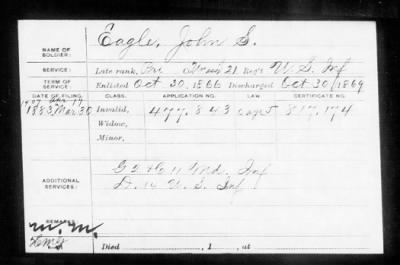 NAME OF SOLDIER: Eagle, John S.
SERVICE: Late rank, Pri Co. 21 Reg't U. S. Inf
TERM OF SERVICE: Enlisted Oct 30, 1866 Discharged Oct 30, 1869
DATE OF FILING. CLASS. APPLICATION NO. LAW. CERTIFICATE NO.
1883 Mar 30 Invalid, 477.843 817.174
Widow,
Minor,
ADDITIONAL SERVICES: G 2 & C 11 Md. Inf
D. 14 U. S. Inf
REMARKS:
Died , 1 , at